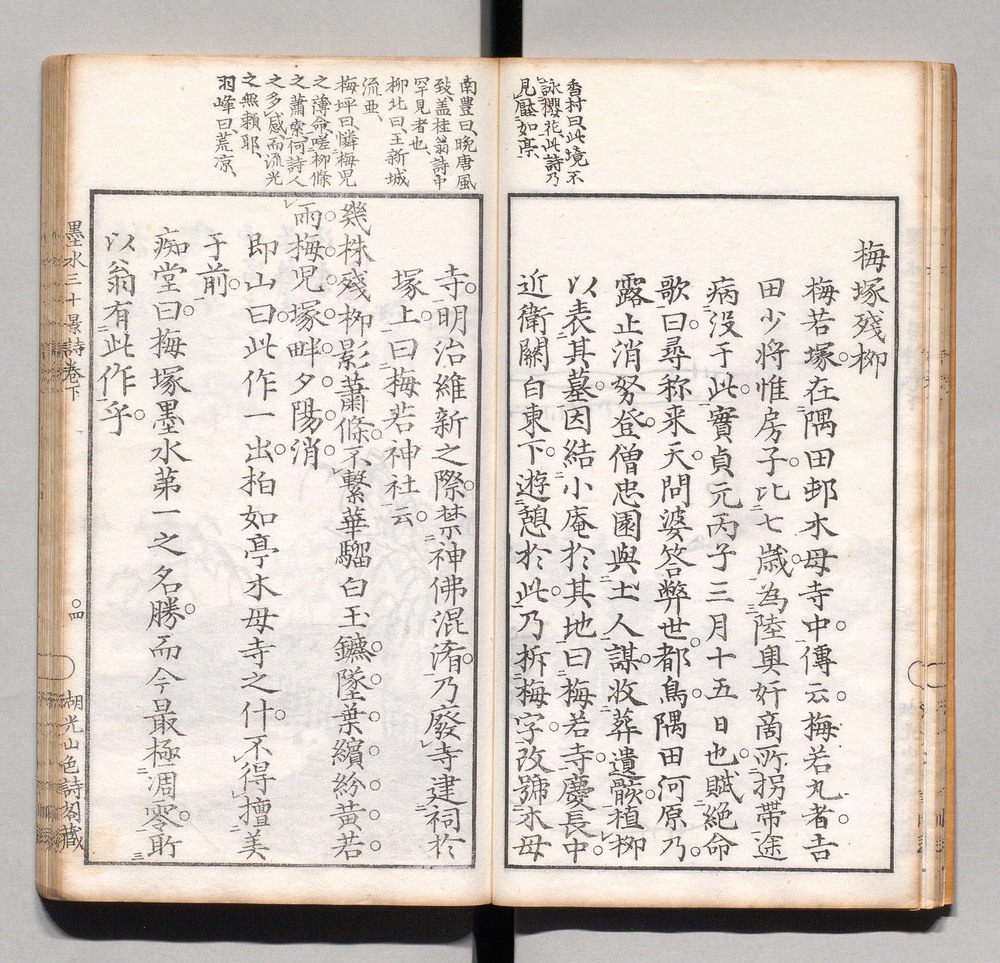 香村曰此境不
詠櫻花此詩乃
見壓如亭
梅塚殘柳
梅若塚在隅田邨木母寺中傳云梅若丸者吉
田少將惟房子比七歳為陸奧奸商所拐帶途
病没于此實貞元丙子三月十五日也賦絶命
歌曰尋称来天問婆答弊世都鳥隅田河原乃
露止消努登僧忠圓與土人謀收葬遺骸植柳
以表其墓因結小庵於其地曰梅若寺慶長中
近衛關白東下遊憩於此乃拆梅字改號木母
南豊曰晩唐風
致蓋桂翁詩中
罕見者也
柳北曰王新城
流亜
梅坪曰憐梅兒
之薄命嗟柳條
之蕭索何詩人
之多感而流光
之無賴耶
羽峰曰荒凉
寺明治維新之際禁神佛混淆乃廢寺建祠於
塚上曰梅若神社云
幾株殘柳影蕭條不繋華騮白玉鑣墜葉繽紛黄若
雨梅児塚畔夕陽消
即山曰此作一出柏如亭木母寺之什不得擅美
于前
痴堂曰梅塚墨水第一之名勝而今最極凋零所
以翁有此作乎
墨水三十景詩卷下
四
湖光山色詩閣藏